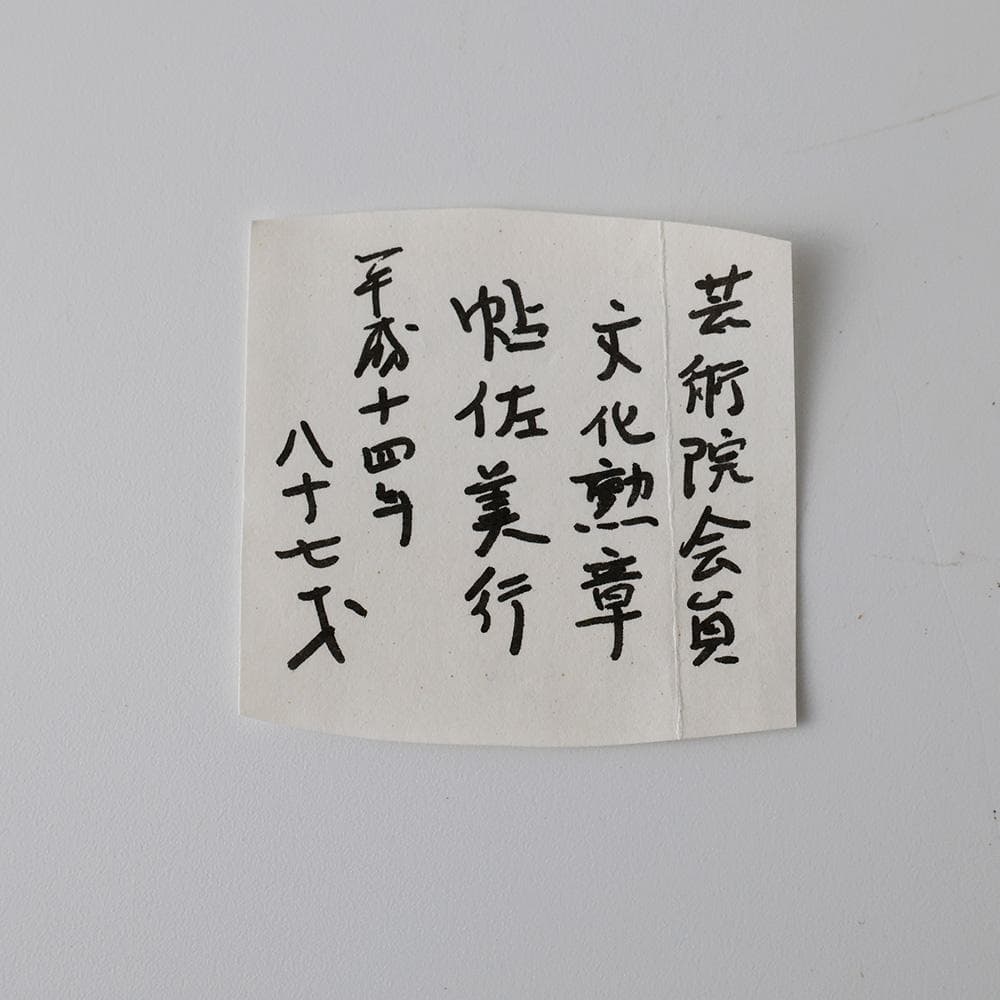 芸術院会員
文化勲章
帖佐美行
平成十四年
八十七才